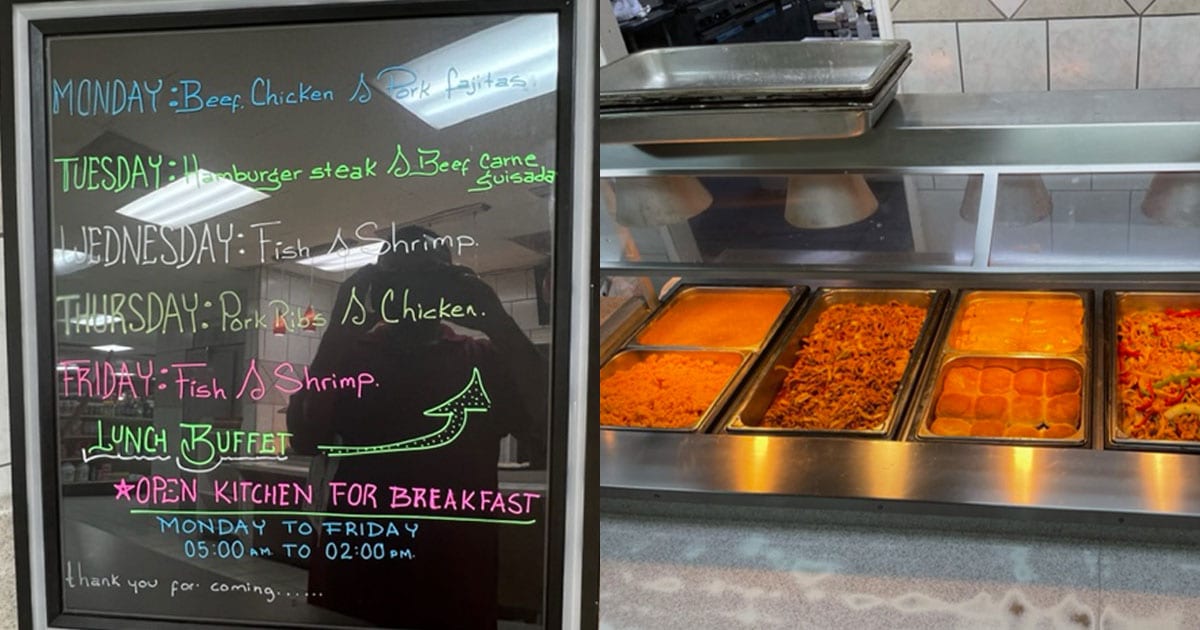 MONDAY: Beef, Chicken & Pork fajitas.
TUESDAY: Hamburger steak & Beef Carne
guisada
WEDNESDAY: Fish & Shrimp.
THURSDAY: Pork Ribs & Chicken.
FRIDAY: Fish & Shrimp.
LUNCH BUFFET
★OPEN KITCHEN FOR BREAKFAST
MONDAY TO FRIDAY
05:00 AM. TO 02:00 PM.
thank you for coming......